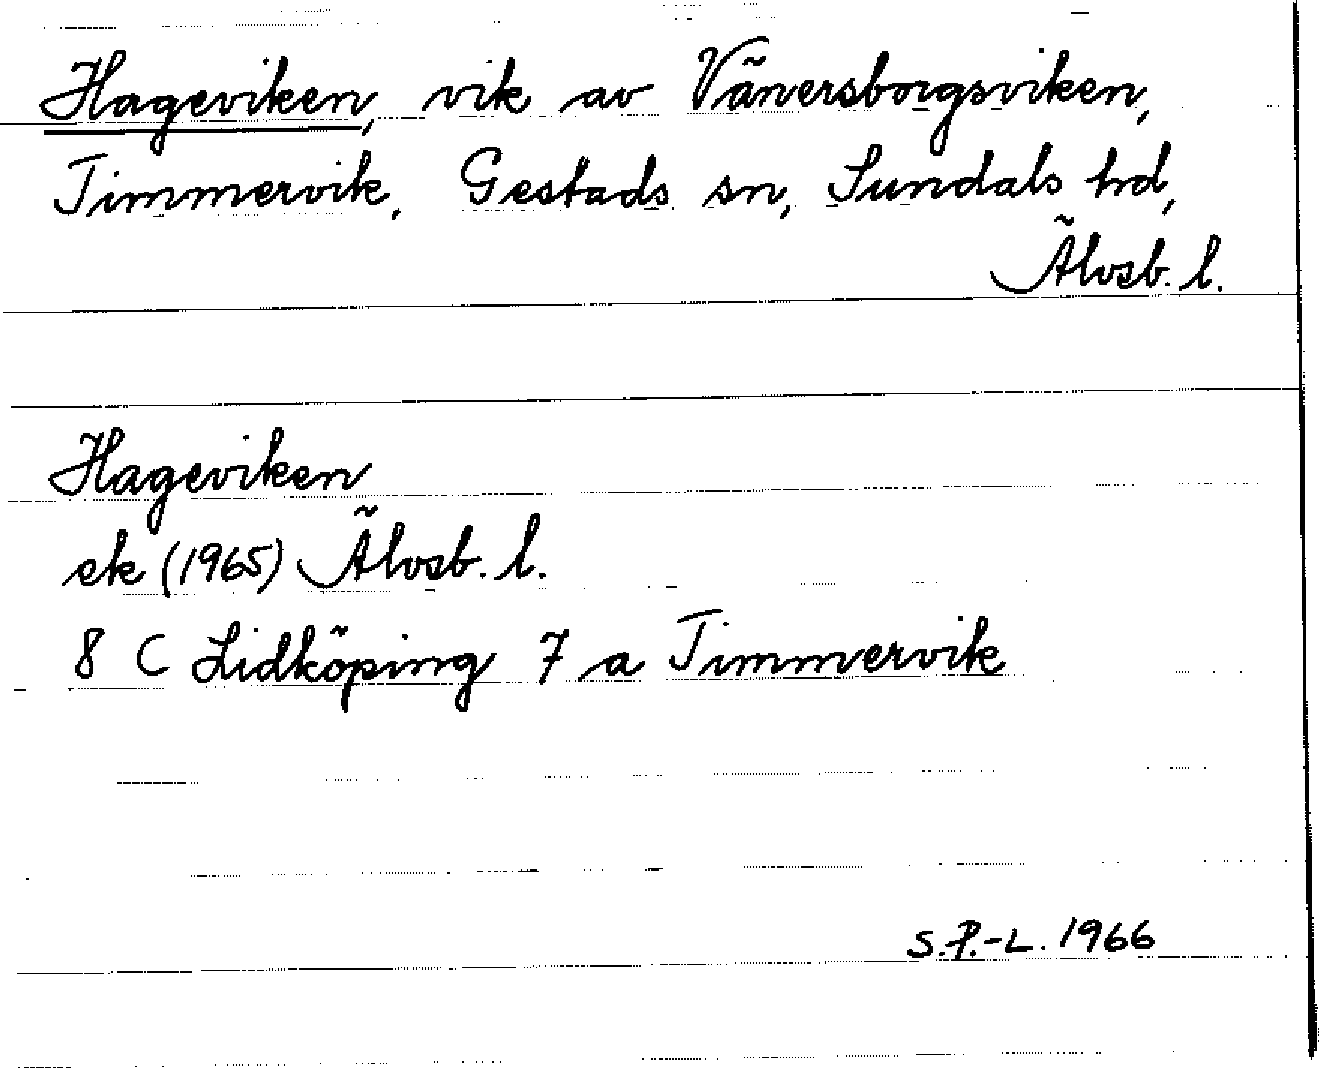 Hageviken, vik av Vänersborgsviken,
Timmervik, Gestads sn, Sundals hd,
Älvsb. l.
Hageviken
ek (1965) Älvsb. l.
8 C Lidköping 7 a Timmervik
S.P.-L. 1966